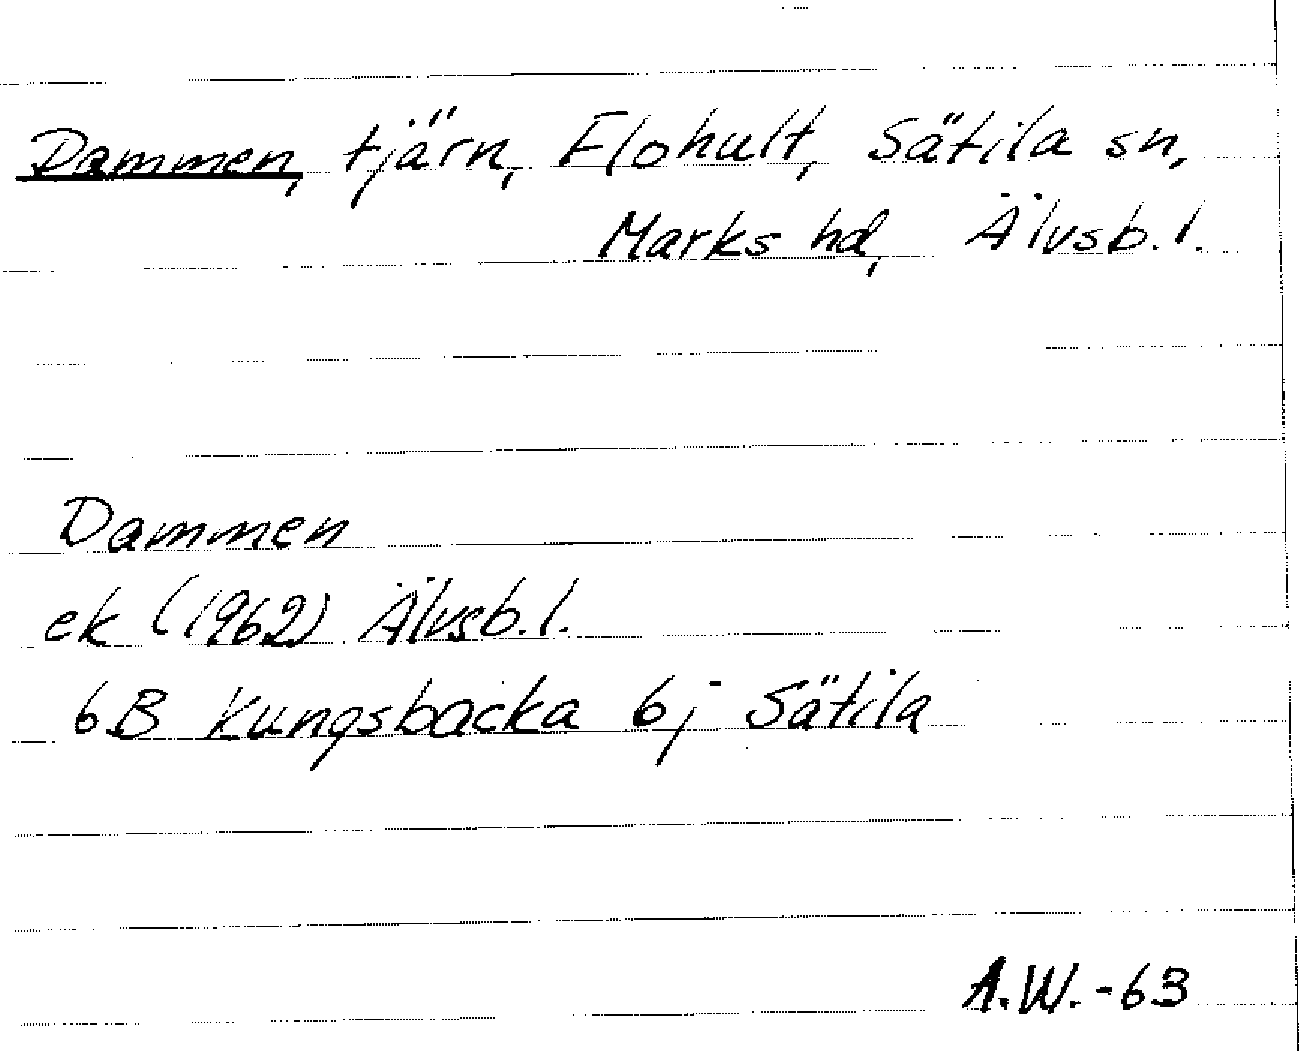 Dammen, tjärn, Flohult, Sätila sn,
Marks hd, Älvsb. l.
Dammen
ek (1962) Älvsb. l.
6B Kungsbacka 6j Sätila
A.W. -63